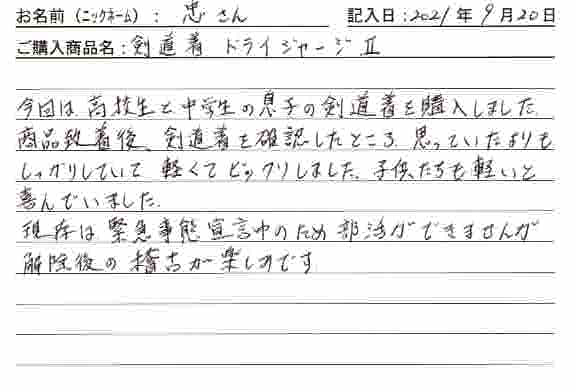 お名前（ニックネーム）： 忠さん 記入日：2021年9月20日
ご購入商品名：剣道着 ドライジャージⅡ
今回は、高校生と中学生の息子の剣道着を購入しました。
商品致着後、剣道着を確認したところ、思っていたよりも
しっかりしていて 軽くてビックリしました。子供たちも軽いと
喜んでいました。
現在は緊急事態宣言中のため部活ができませんが
解除後の稽古が楽しみです